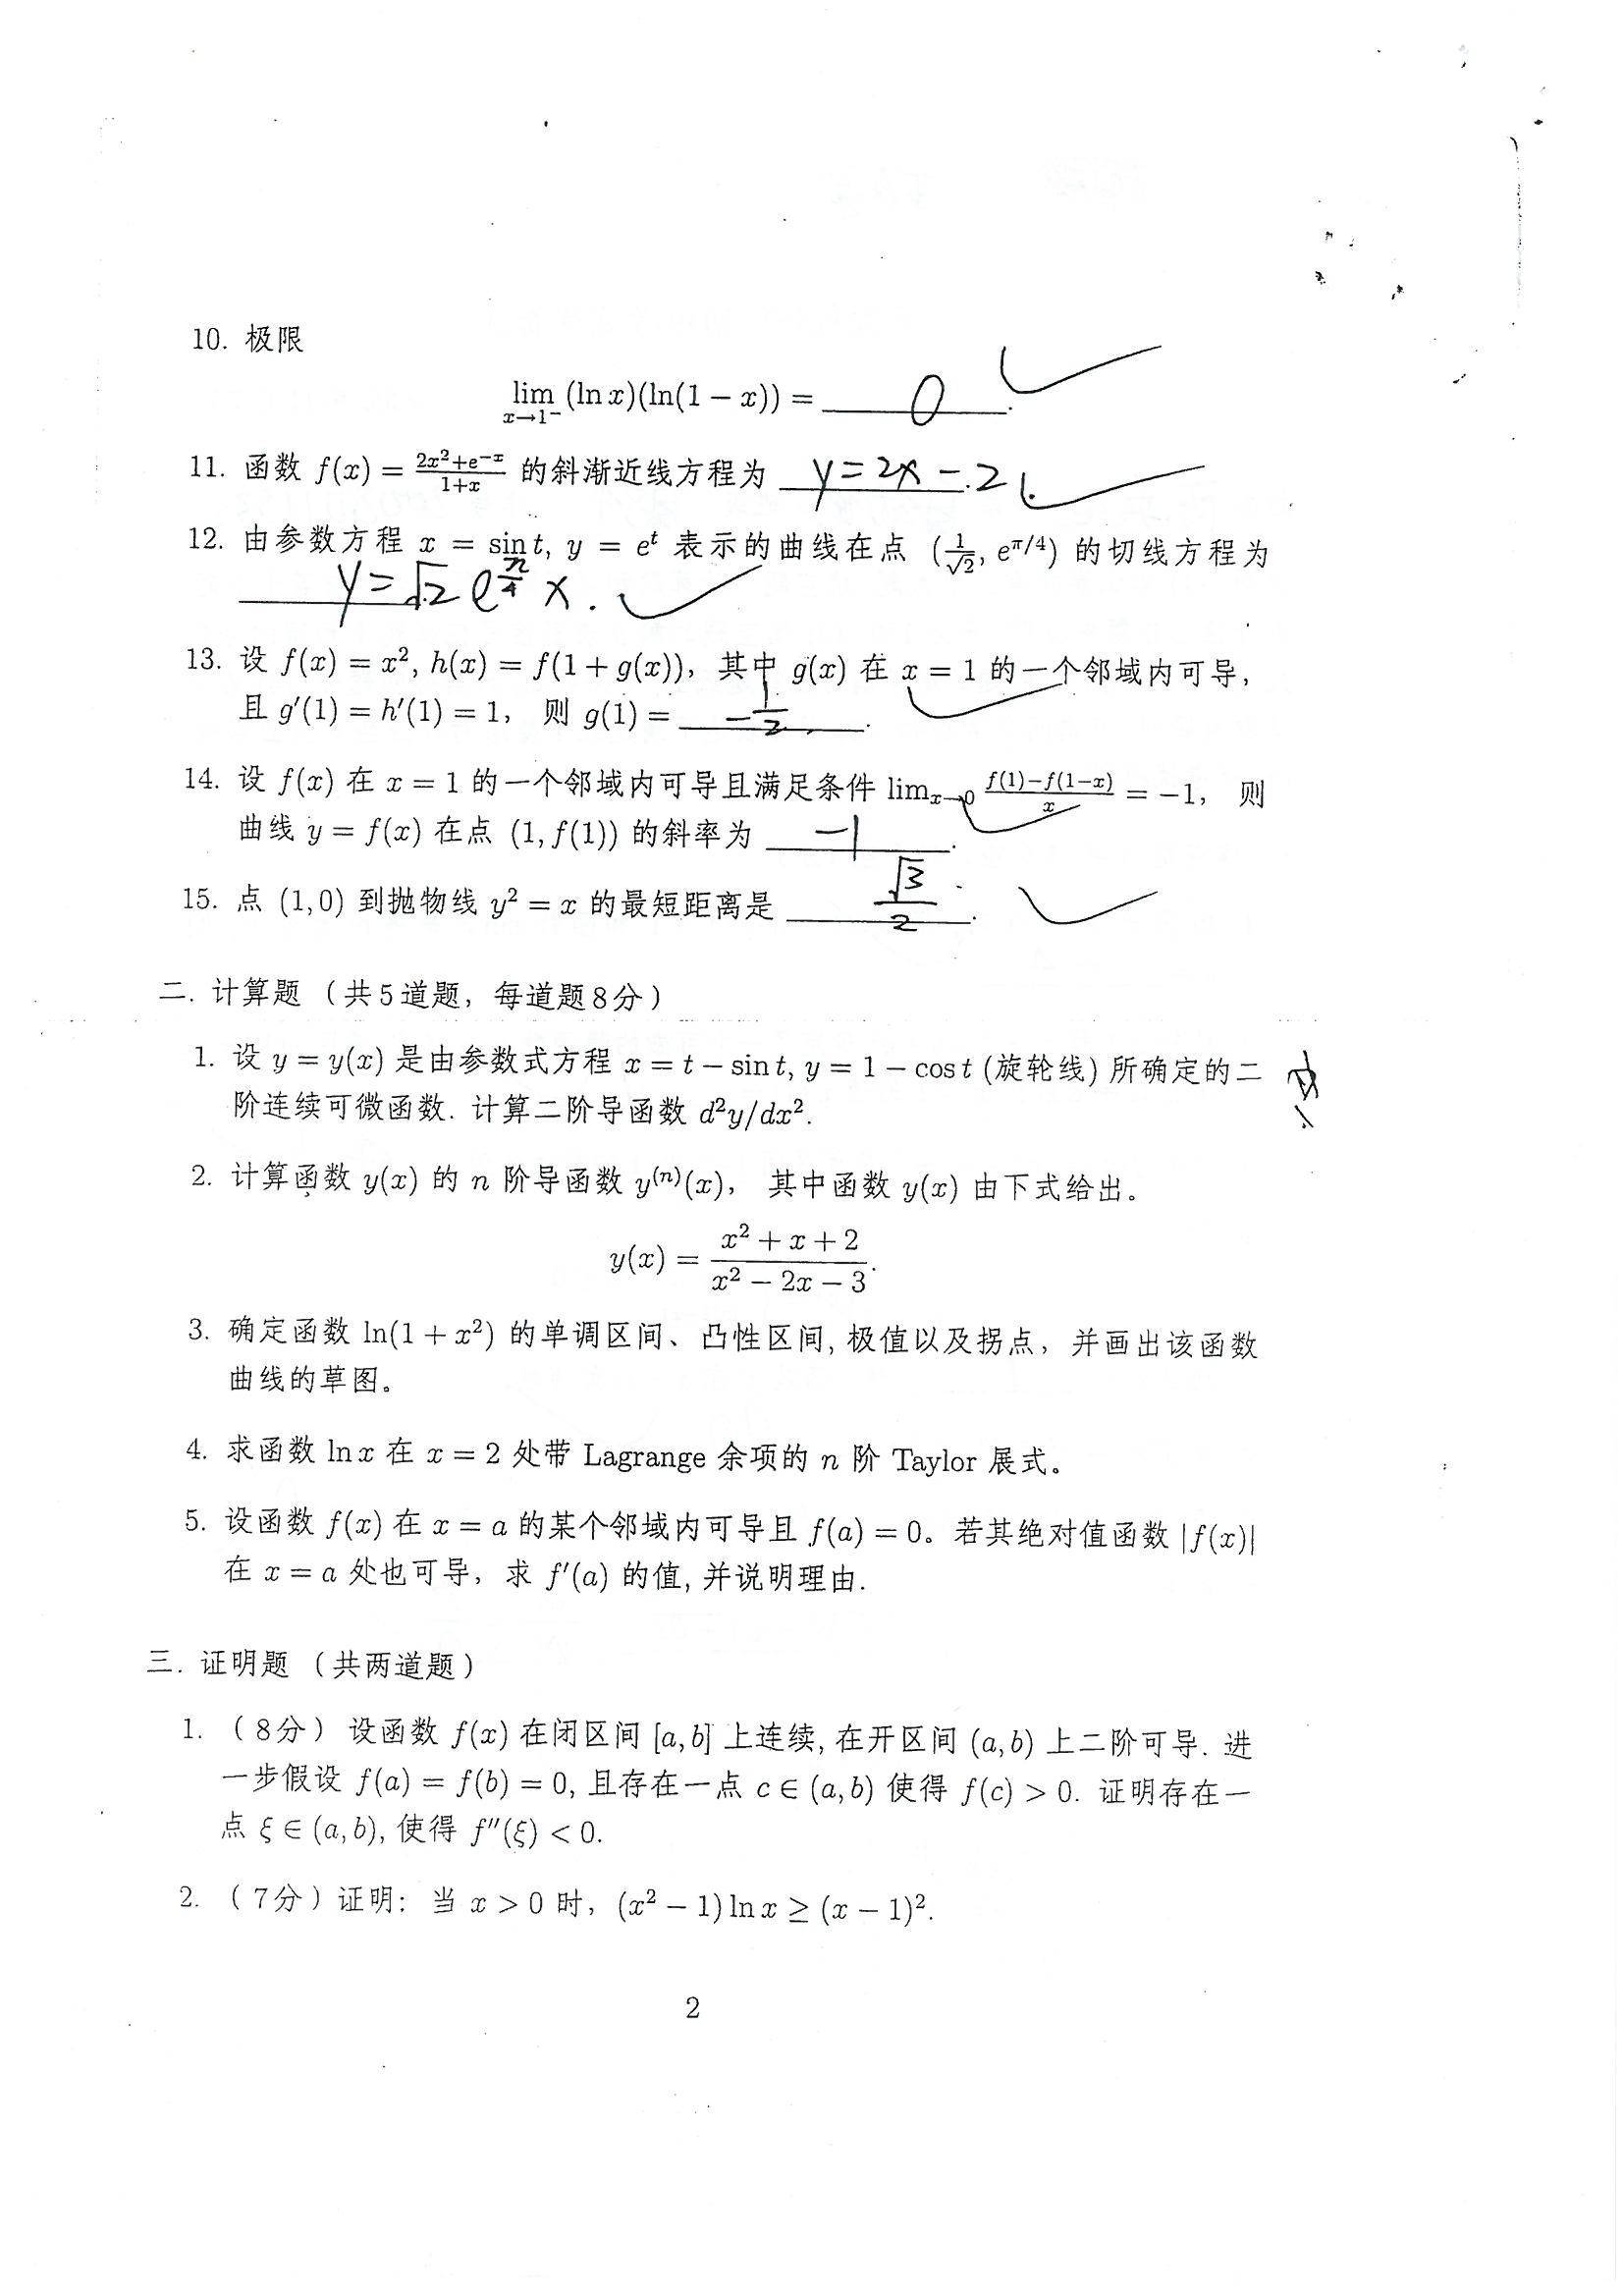 10. 极限
lim_{x→1⁻} (ln x)(ln(1 − x)) = 0.
11. 函数 f(x) = \frac{2x²+e^{-x}}{1+x} 的斜渐近线方程为 y=2x-2.
12. 由参数方程 x = sin t, y = e^t 表示的曲线在点 (\frac{1}{√2}, e^{π/4}) 的切线方程为
y=√2 e^{\frac{π}{4}} x.
13. 设 f(x) = x², h(x) = f(1 + g(x)), 其中 g(x) 在 x = 1 的一个邻域内可导,
且 g′(1) = h′(1) = 1, 则 g(1) = -\frac{1}{2}.
14. 设 f(x) 在 x = 1 的一个邻域内可导且满足条件 lim_{x→0} \frac{f(1)−f(1−x)}{x} = −1, 则
曲线 y = f(x) 在点 (1, f(1)) 的斜率为 -1.
15. 点 (1,0) 到抛物线 y² = x 的最短距离是 \frac{√3}{2}.
二. 计算题 (共5道题, 每道题8分)
1. 设 y = y(x) 是由参数式方程 x = t − sin t, y = 1 − cos t (旋轮线) 所确定的二
阶连续可微函数. 计算二阶导函数 d²y/dx².
2. 计算函数 y(x) 的 n 阶导函数 y^{(n)}(x), 其中函数 y(x) 由下式给出。
y(x) = \frac{x² + x + 2}{x² − 2x − 3}.
3. 确定函数 ln(1 + x²) 的单调区间、凸性区间, 极值以及拐点, 并画出该函数
曲线的草图。
4. 求函数 ln x 在 x = 2 处带 Lagrange 余项的 n 阶 Taylor 展式。
5. 设函数 f(x) 在 x = a 的某个邻域内可导且 f(a) = 0。若其绝对值函数 |f(x)|
在 x = a 处也可导, 求 f′(a) 的值, 并说明理由.
三. 证明题 (共两道题)
1. (8分) 设函数 f(x) 在闭区间 [a, b] 上连续, 在开区间 (a, b) 上二阶可导. 进
一步假设 f(a) = f(b) = 0, 且存在一点 c ∈ (a, b) 使得 f(c) > 0. 证明存在一
点 ξ ∈ (a, b), 使得 f″(ξ) < 0.
2. (7分) 证明: 当 x > 0 时, (x² − 1) ln x ≥ (x − 1)².
2